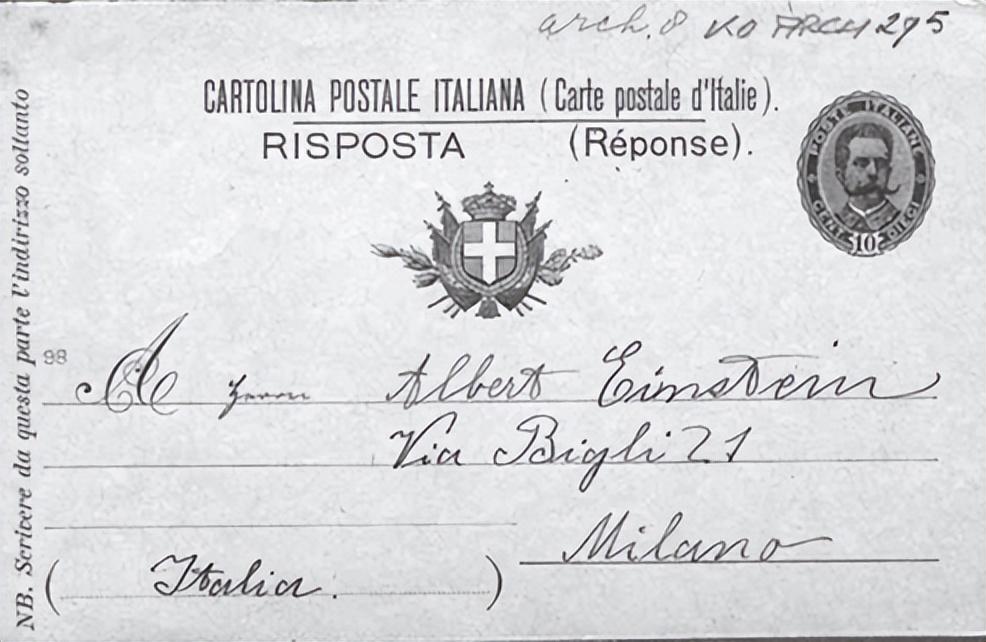 arch. 8 KO ARCH 295
CARTOLINA POSTALE ITALIANA (Carte postale d'Italie).
RISPOSTA (Réponse).
POSTE ITALIANE
CENT. 10 DIECI
NB. Scrivere da questa parte l'indirizzo soltanto
98
A Herrn Albert Einstein
Via Bigli 21
Milano
(Italia.)